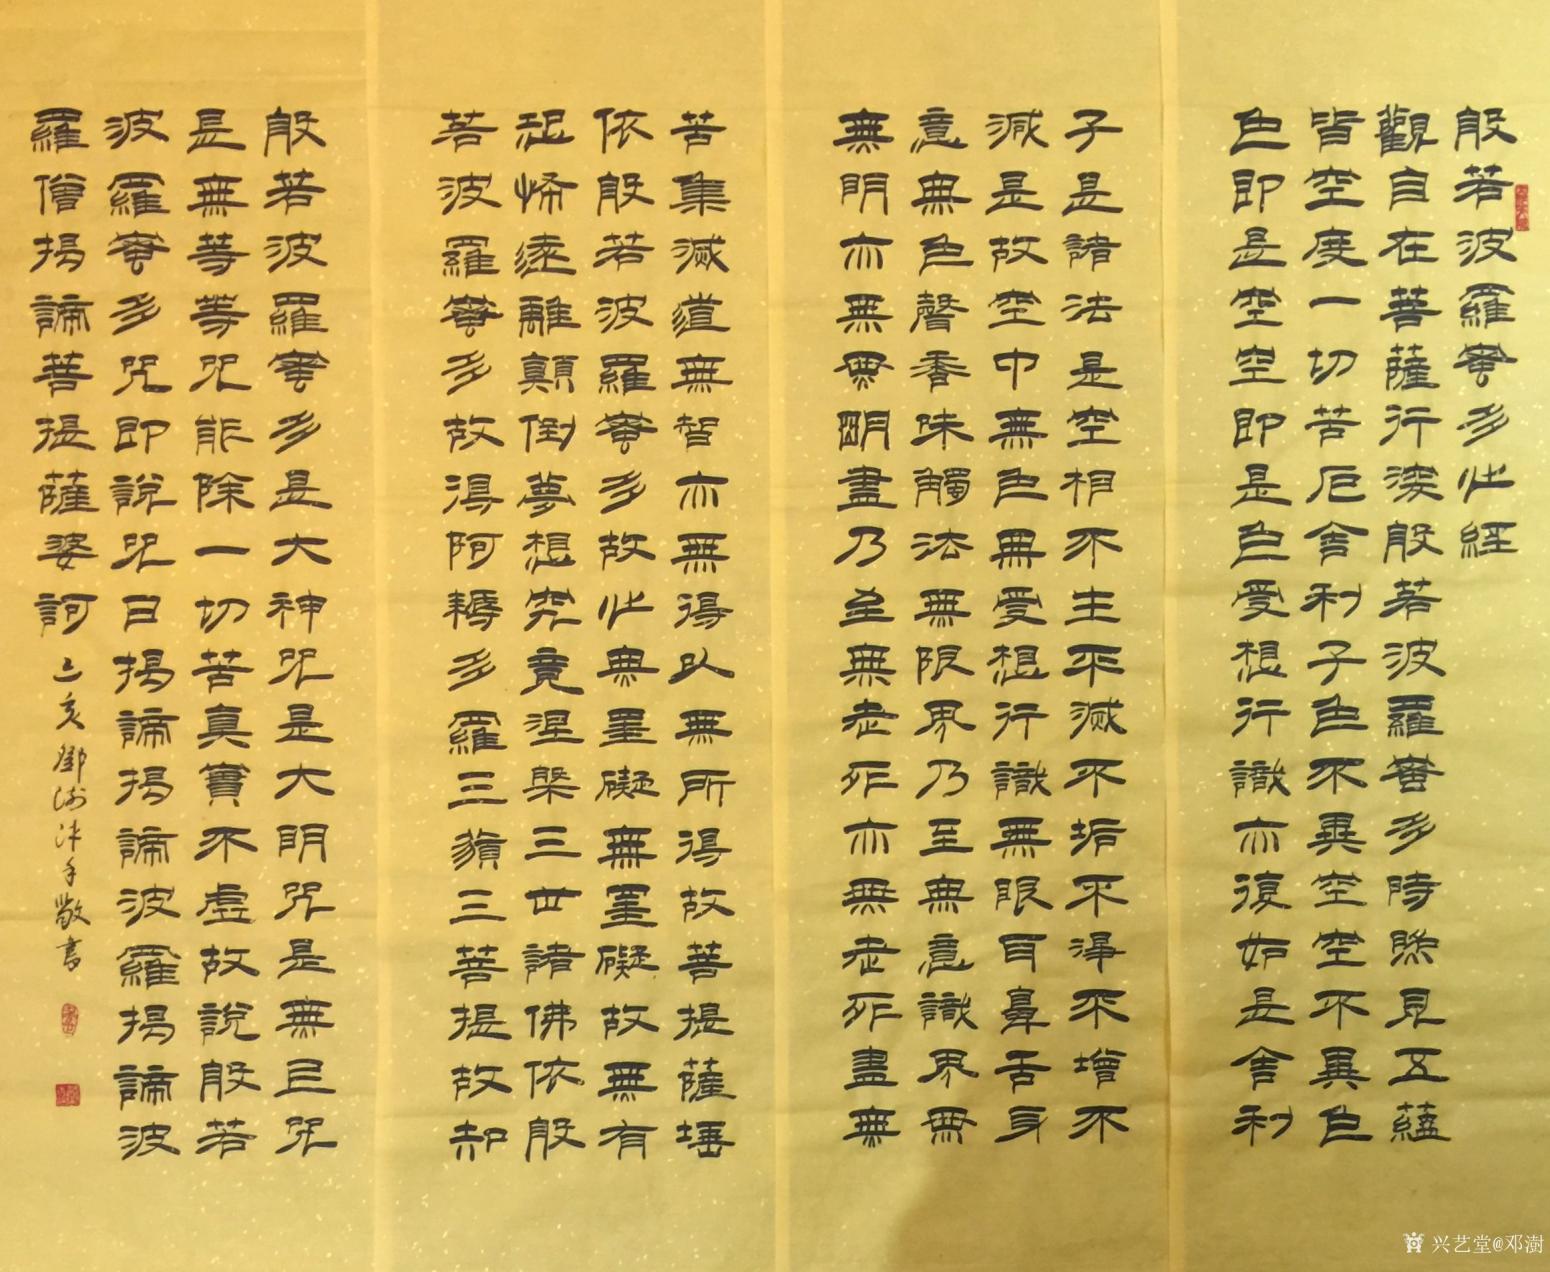 般若波羅蜜多心經
觀自在菩薩行深般若波羅蜜多時照見五蘊
皆空度一切苦厄舍利子色不異空空不異色
色即是空空即是色受想行識亦復如是舍利
子是諸法是空相不生不滅不垢不淨不增不
減是故空中無色無受想行識無眼耳鼻舌身
意無色聲香味觸法無眼界乃至無意識界無
無明亦無無明盡乃至無老死亦無老死盡無
苦集滅道無智亦無得以無所得故菩提薩埵
依般若波羅蜜多故心無罣礙無罣礙故無有
恐怖遠離顛倒夢想究竟涅槃三世諸佛依般
若波羅蜜多故得阿耨多羅三藐三菩提故知
般若波羅蜜多是大神咒是大明咒是無上咒
是無等等咒能除一切苦真實不虛故說般若
波羅蜜多咒即說咒曰揭諦揭諦波羅揭諦波
羅僧揭諦菩提薩婆訶 己亥鄧澍沐手敬書
兴艺堂@邓澍